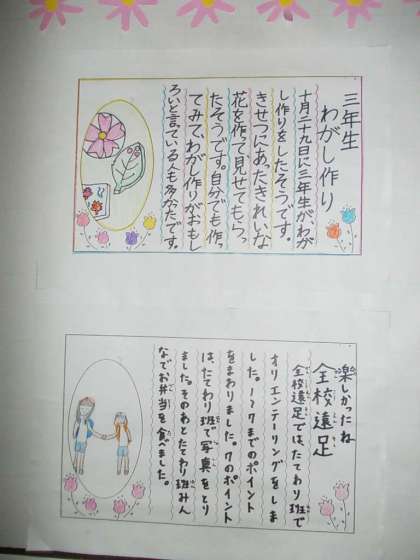 三年生
わがし作り
十月二十九日に三年生が、わが
し作りをしたそうです。
きせつにあったきれいな
花を作って見せてもらっ
たそうです。自分でも作っ
てみて、わがし作りがおもし
ろいと言っている人も多かたです。
楽しかったね
全校遠足
全校遠足では、たてわり班で
オリエンテーリングをしま
した。1〜7までのポイント
をまわりました。7のポイント
は、たてわり班で写真をとり
ました。そのあとたてわり班みん
なでお弁当を食べました。